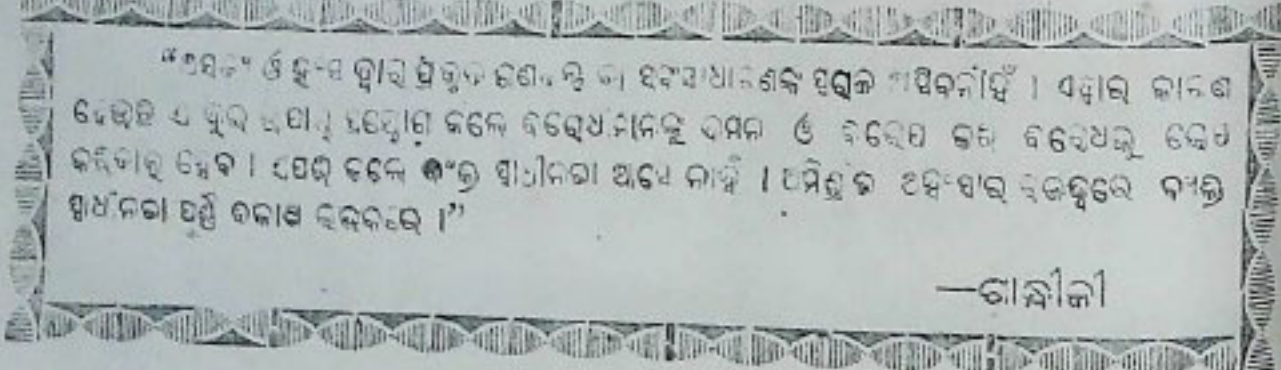 “ଅସତ୍ୟ ଓ ହିଂସା ଦ୍ୱାରା ପ୍ରକୃତ ଗଣତନ୍ତ୍ର ବା ସର୍ବସାଧାରଣଙ୍କ ସ୍ୱରାଜ ଆସିବନାହିଁ । ଏହାର କାରଣ
ହେଉଛି ଏ ଦୁଇ ଉପାୟ ପ୍ରୟୋଗ କଲେ ବିରୋଧୀମାନଙ୍କୁ ଦମନ ଓ ବିଲୋପ କରି ବିରୋଧକୁ ଲୋପ
କରିବାକୁ ହେବ । ସେପରି କଲେ ବ୍ୟକ୍ତି ସ୍ୱାଧୀନତା ଆସେ ନାହିଁ । ଅମିଶ୍ରିତ ଅହିଂସାର ରାଜତ୍ୱରେ ବ୍ୟକ୍ତି
ସ୍ୱାଧୀନତା ପୂର୍ଣ୍ଣ ବିକାଶ ଲାଭକରେ ।”
—ଗାନ୍ଧୀଜୀ